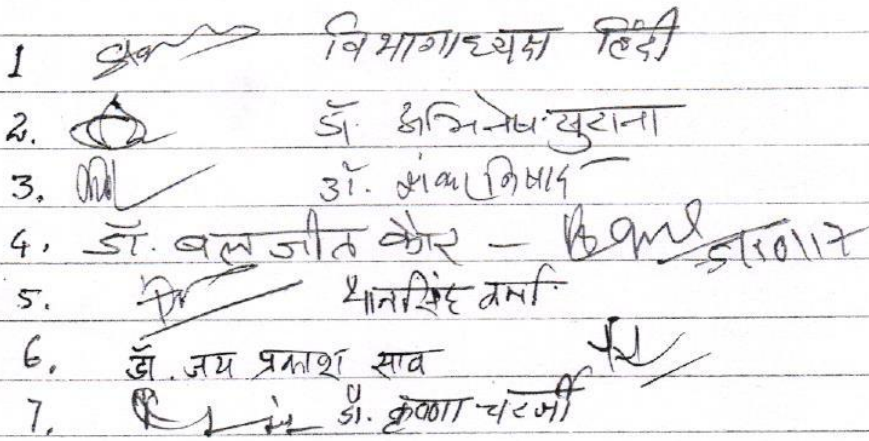 1 विभागाध्यक्ष हिंदी
2. डॉ. अभिनेष सुराना
3. डॉ. शंकर निषाद
4. डॉ. बलजीत कौर - 5/10/17
5. थानसिंह वर्मा
6. डॉ. जय प्रकाश साव
7. डॉ. कृष्णा चटर्जी